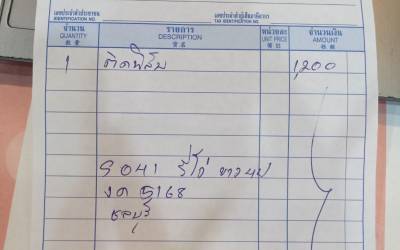 เลขประจำตัวประชาชน
IDENTIFICATION NO.
เลขประจำตัวผู้เสียภาษีอากร
TAX IDENTIFICATION NO.
จำนวน รายการ หน่วยละ จำนวนเงิน
QUANTITY DESCRIPTION UNIT PRICE AMOUNT
1 ติดฟิล์ม 1,200
S041 รีโว่ ขาว 4ป
งด 5168
ชลบุรี